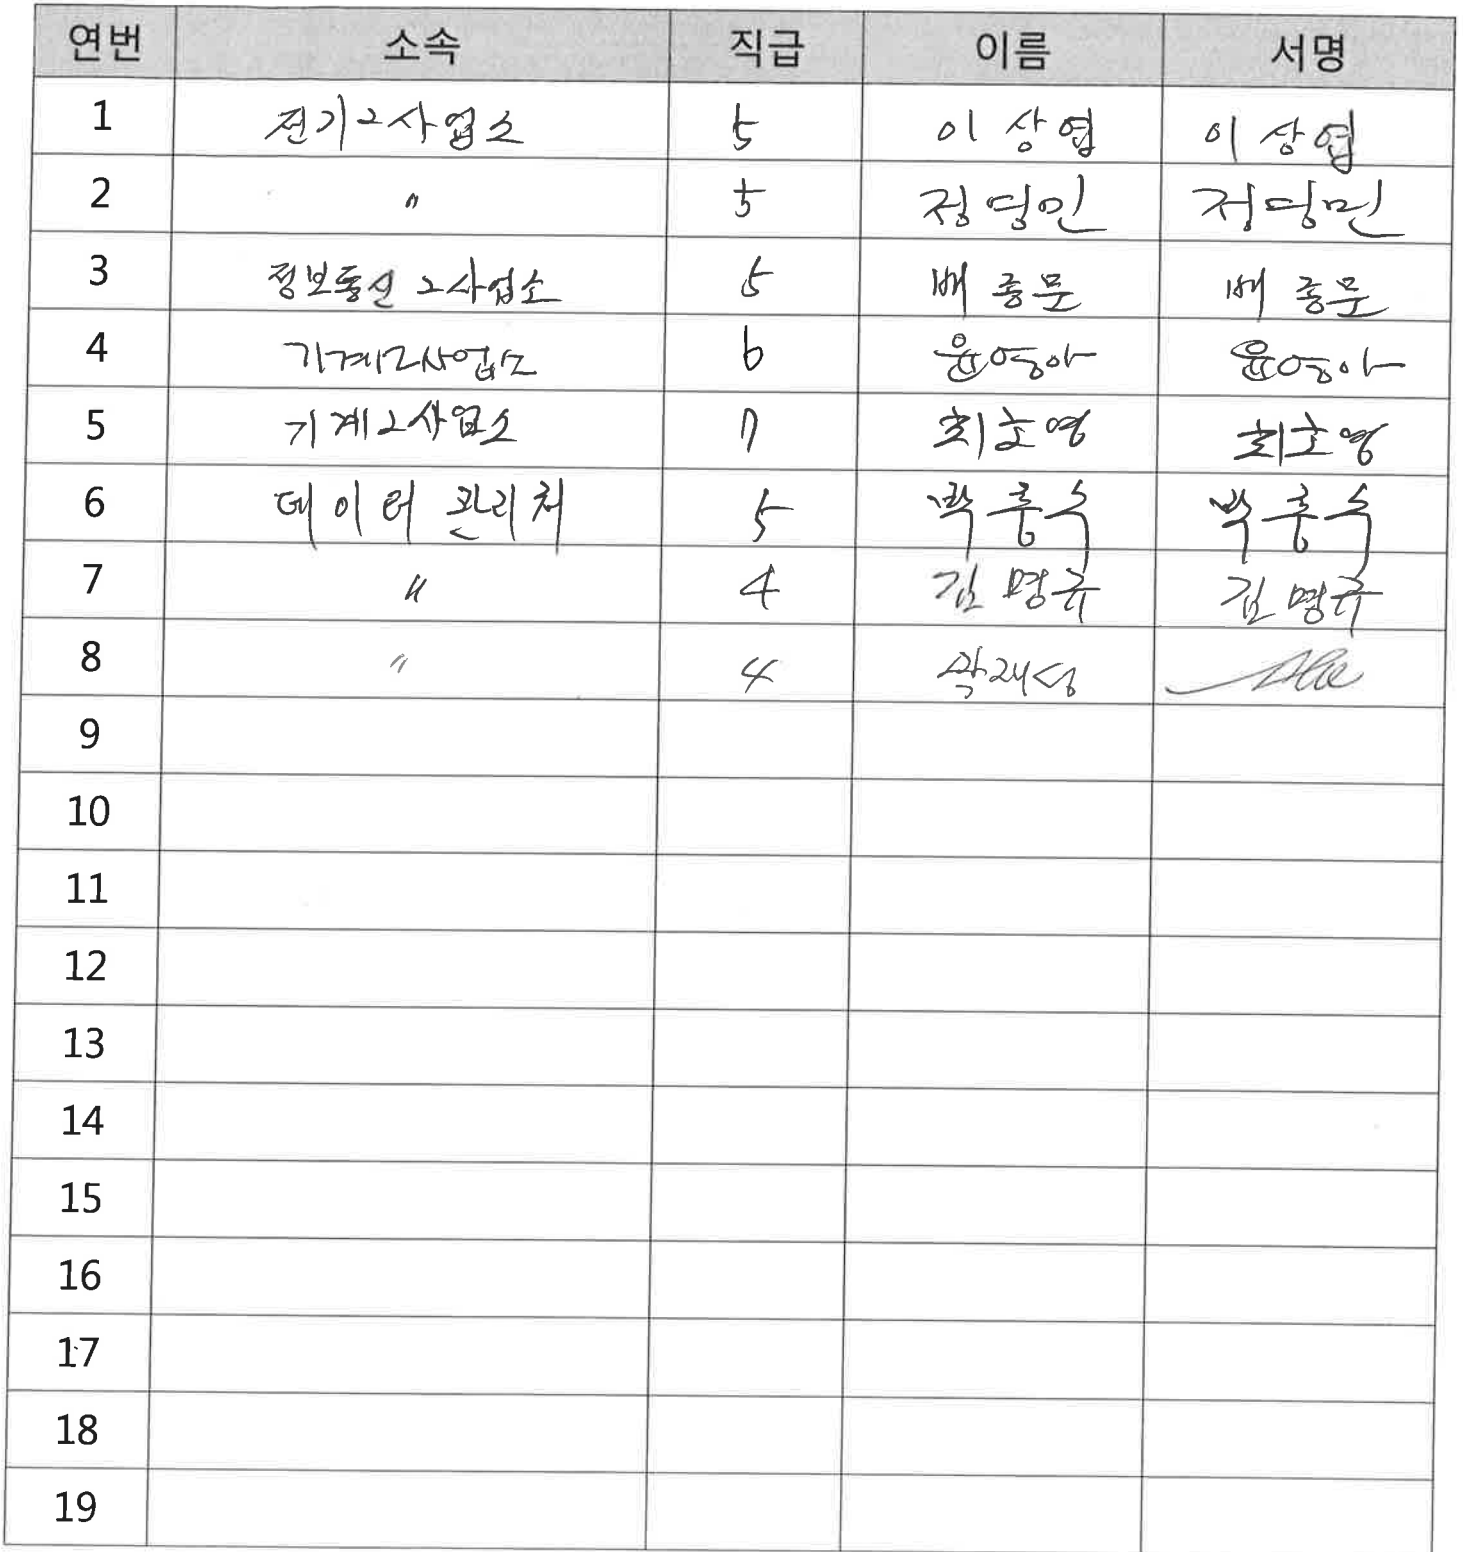 연번 소속 직급 이름 서명
1 전기2사업소 5 이상엽 이상엽
2 〃 5 정영인
3 정보통신2사업소 5 배종문 배종문
4 기계2사업소 6 윤영아 윤영아
5 기계2사업소 7 최호영 최호영
6 데이터 관리처 5 박홍수 박홍수
7 〃 4 김명규 김명규
8 〃 4 곽재성
9
10
11
12
13
14
15
16
17
18
19